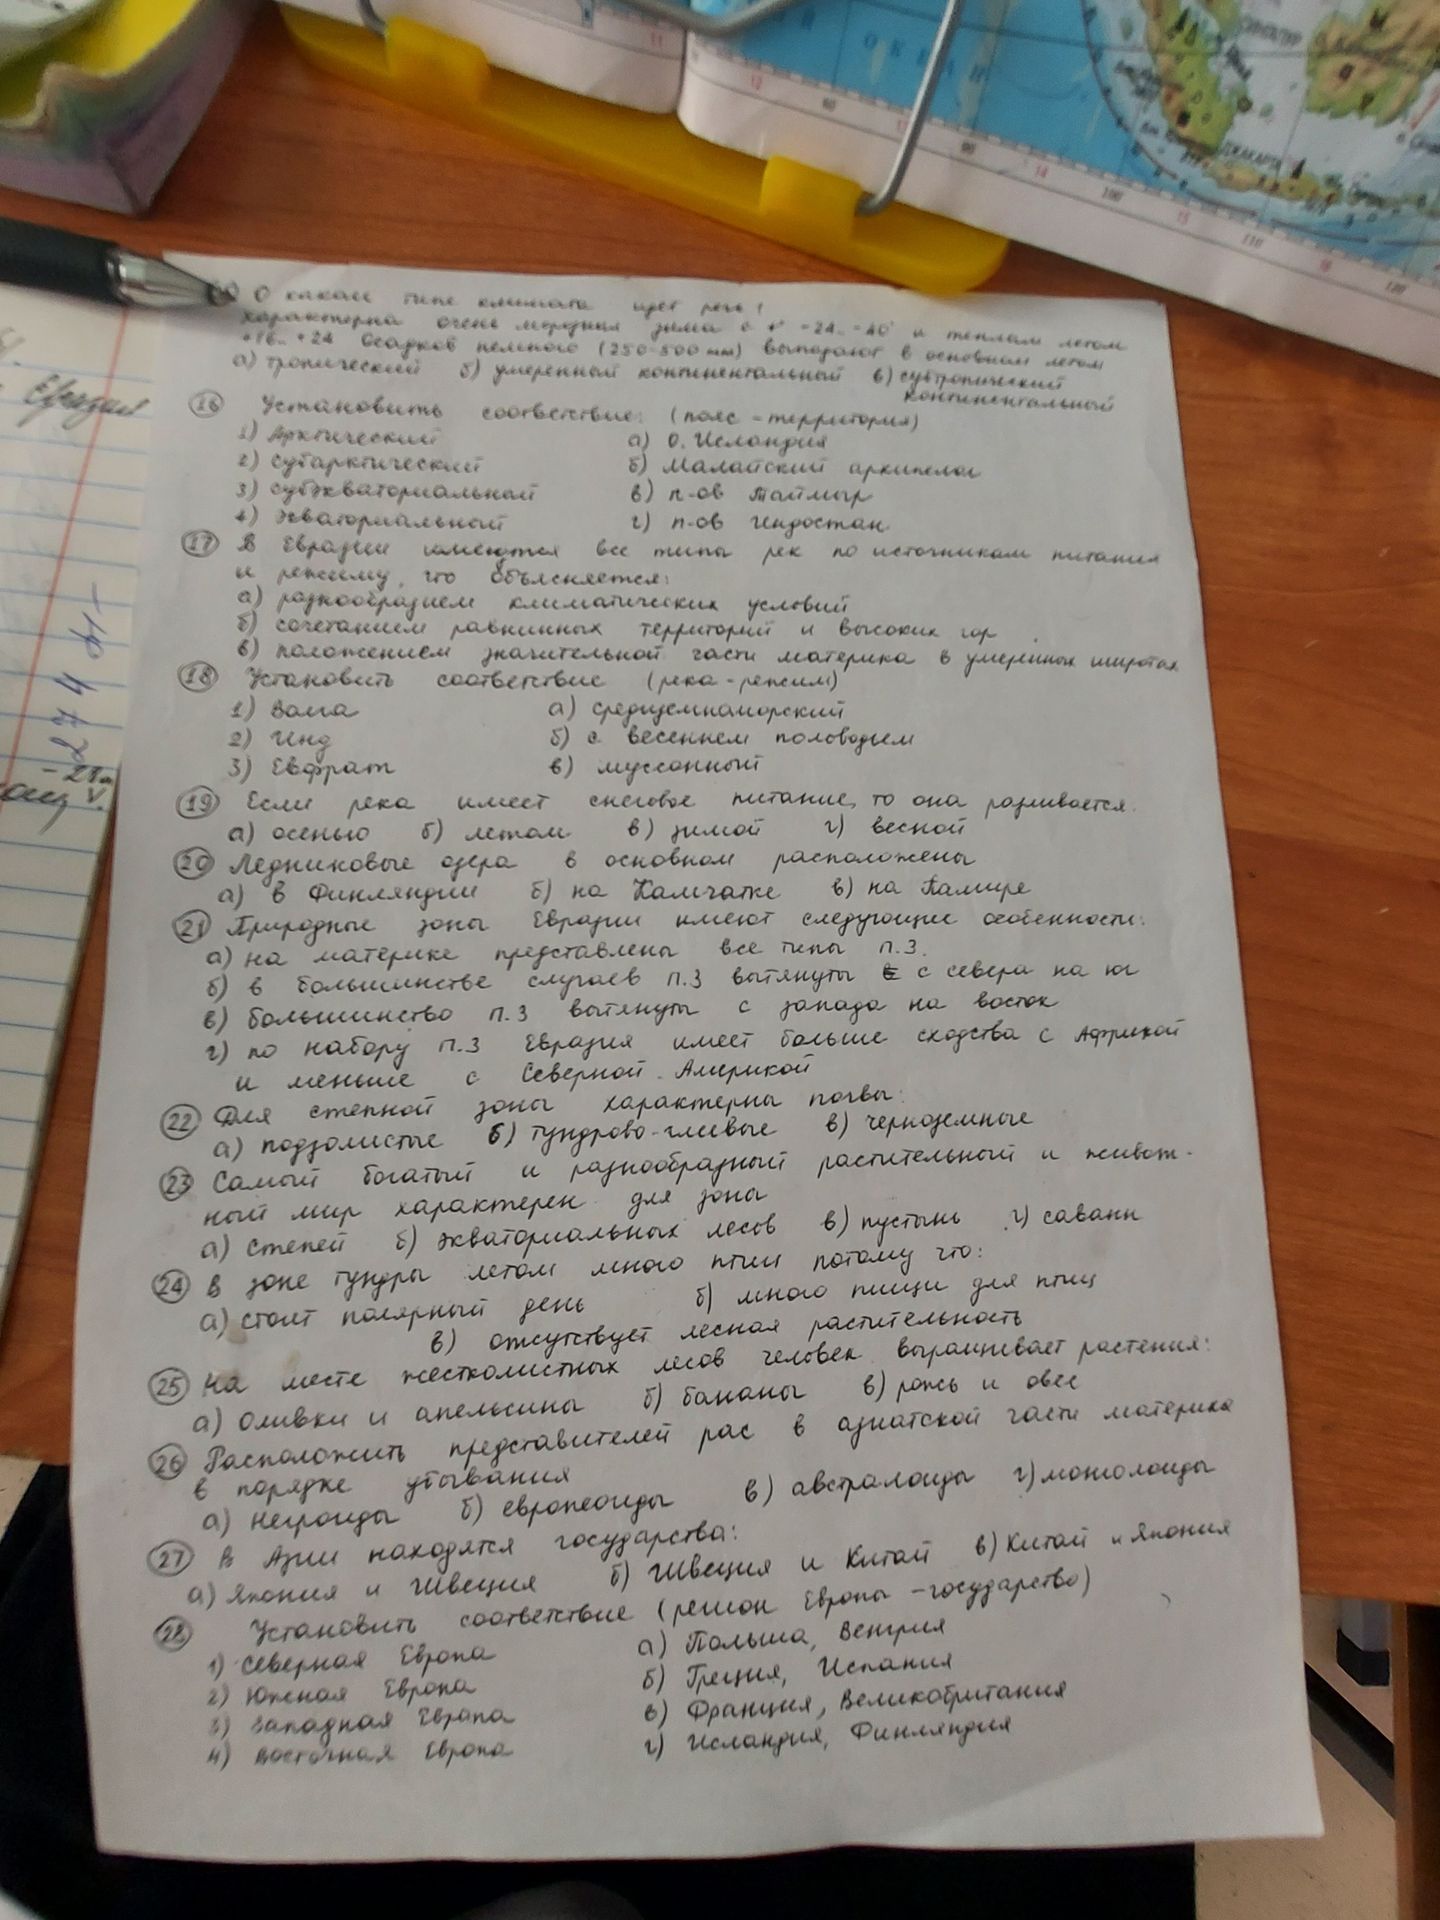 О каком типе климата идет речь?
характерна очень морозная зима с t° -24.. -40° и теплым летом
+16.. +24 Осадков немного (250-500 мм) выпадают в основном летом
а) тропический б) умеренный континентальный в) субтропический
континентальный
16 Установить соответствие: (пояс - территория)
1) Арктический а) о. Исландия
2) субарктический б) Малайский архипелаг
3) субэкваториальный в) п-ов Таймыр
4) экваториальный г) п-ов Индостан
17 В Евразии имеются все типы рек по источникам питания
и режиму, что объясняется:
а) разнообразием климатических условий
б) сочетанием равнинных территорий и высоких гор
в) положением значительной части материка в умеренных широтах
18 Установить соответствие (река - режим)
1) Волга а) средиземноморский
2) Инд б) с весеннем половодьем
3) Евфрат в) муссонный
19 Если река имеет снеговое питание, то она разливается:
а) осенью б) летом в) зимой г) весной
20 Ледниковые озера в основном расположены
а) в Финляндии б) на Камчатке в) на Памире
21 Природные зоны Евразии имеют следующие особенности:
а) на материке представлены все типы п.з.
б) в большинстве случаев п.з вытянуты с севера на юг
в) большинство п.з вытянуты с запада на восток
г) по набору п.з Евразия имеет больше сходства с Африкой
и меньше с Северной Америкой
22 Для степной зоны характерны почвы:
а) подзолистые б) тундрово-глеевые в) черноземные
23 Самый богатый и разнообразный растительный и живот-
ный мир характерен для зоны
а) степей б) экваториальных лесов в) пустынь г) саванн
24 В зоне тундры летом много птиц потому что:
а) стоит полярный день б) много пищи для птиц
в) отсутствует лесная растительность
25 На месте жестколистных лесов человек выращивает растения:
а) оливки и апельсины б) бананы в) рожь и овес
26 Расположить представителей рас в азиатской части материка
в порядке убывания
а) негроиды б) европеоиды в) австралоиды г) монголоиды
27 В Азии находятся государства:
а) Япония и Швеция б) Швеция и Китай в) Китай и Япония
28 Установить соответствие (регион Европы - государство)
1) Северная Европа а) Польша, Венгрия
2) Южная Европа б) Греция, Испания
3) Западная Европа в) Франция, Великобритания
4) Восточная Европа г) Исландия, Финляндия
Евразия
274
ДЖАКАРТА
СИНГАПУР
11
12
13
14
15
16
80
90
100
110
120